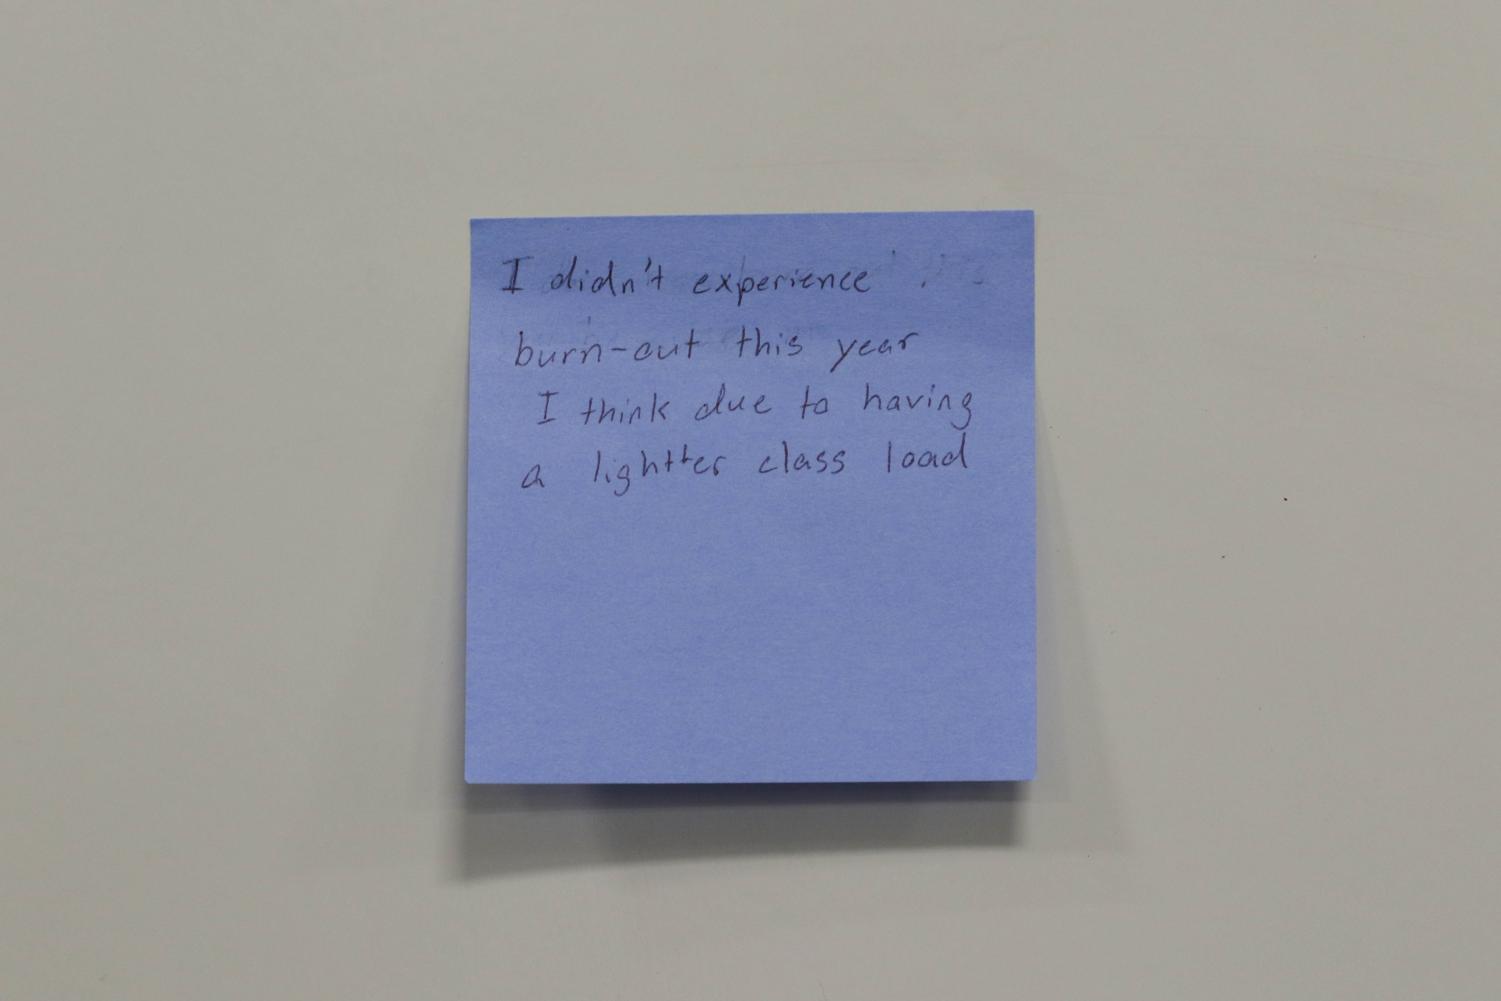 I didn't experience
burn-out this year
I think due to having
a lightter class load